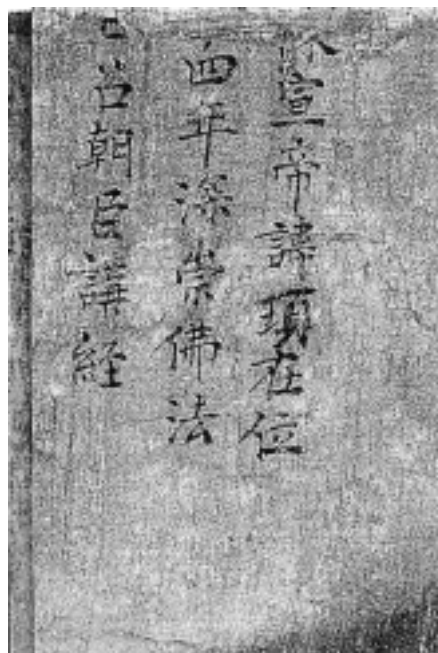 宣帝諱頊在位
四年深崇佛法
召朝臣講経